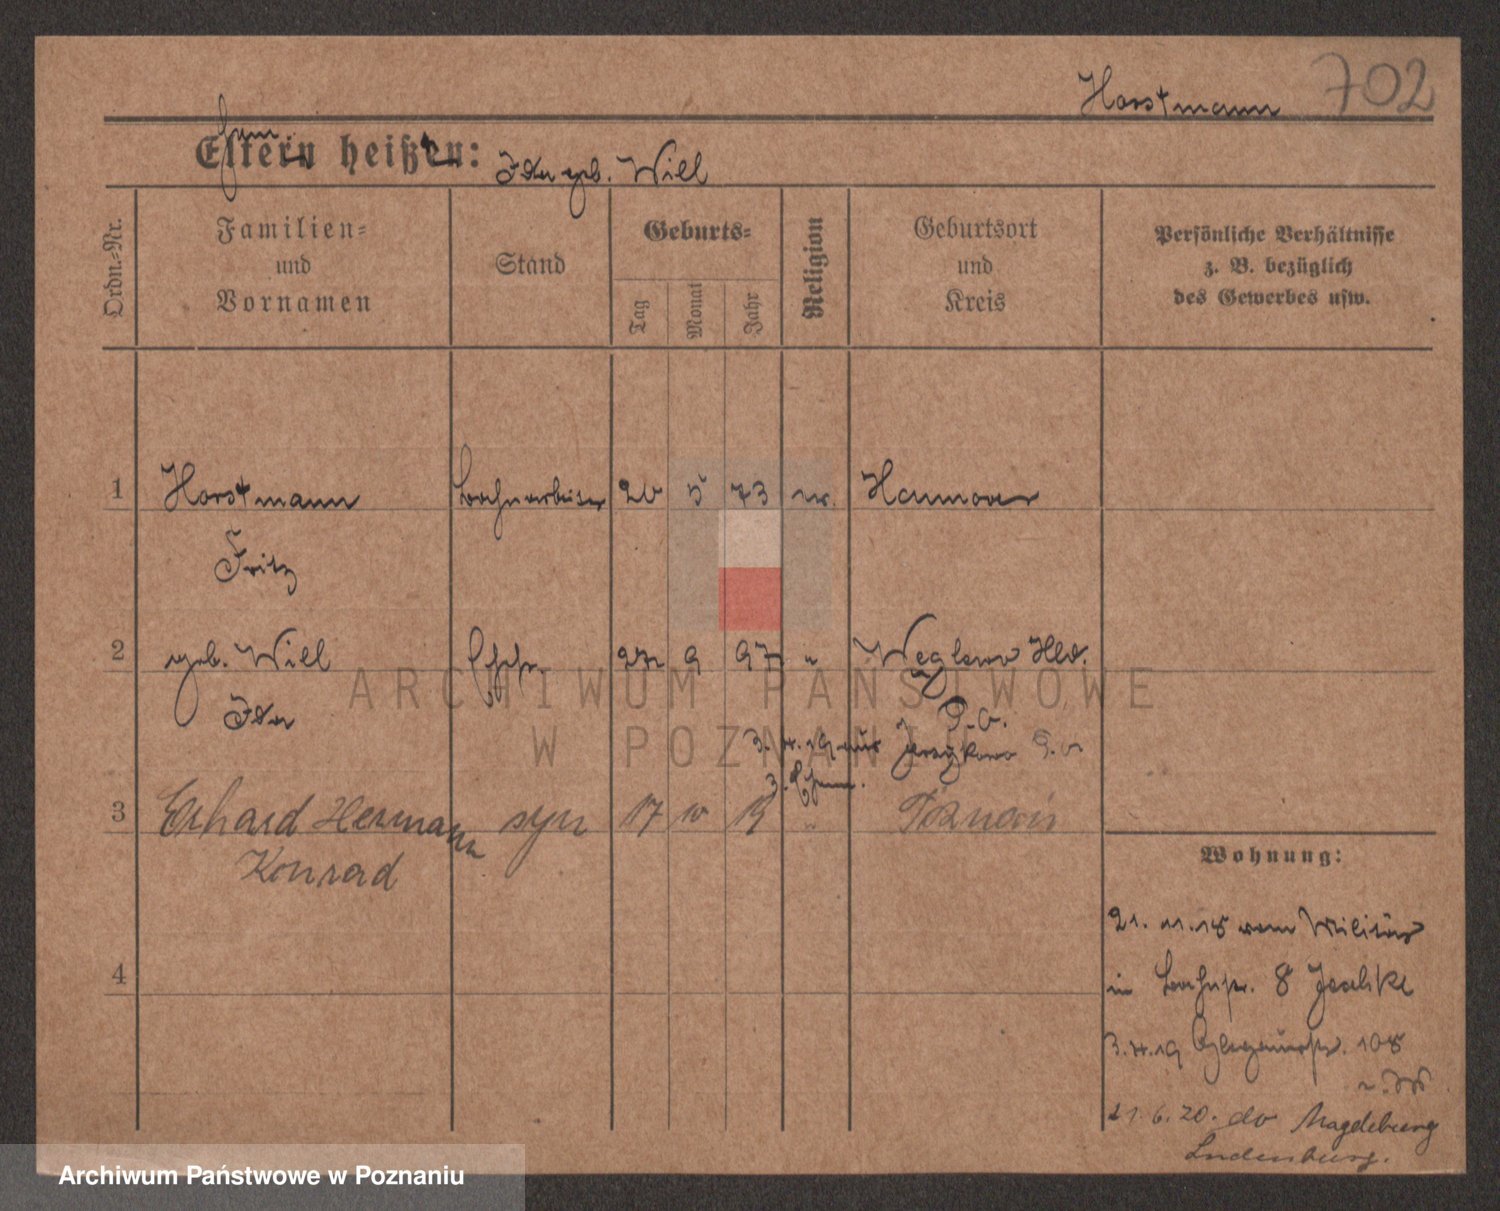 Horstmann 702
Eltern heißen:
Ida geb. Will
Ordn.-Nr.
Familien-
und
Vornamen
Stand
Geburts-
Tag
Monat
Jahr
Religion
Geburtsort
und
Kreis
Persönliche Verhältnisse
z. B. bezüglich
des Gewerbes usw.
1 Horstmann 5 73 Hannover
Fritz
2 geb. Will 9 97 " Hld.
Ida
P.O.
3. 4. 19 aus Jerzykowo P.O.
3 Erhard Hermann syn 17 " Poznań
Konrad
Wohnung:
21. 11. 18 vom Militär
in 8
4
3. 4. 19 108
21. 6. 20. do Magdeburg
ARCHIWUM PAŃSTWOWE
W POZNANIU
Archiwum Państwowe w Poznaniu